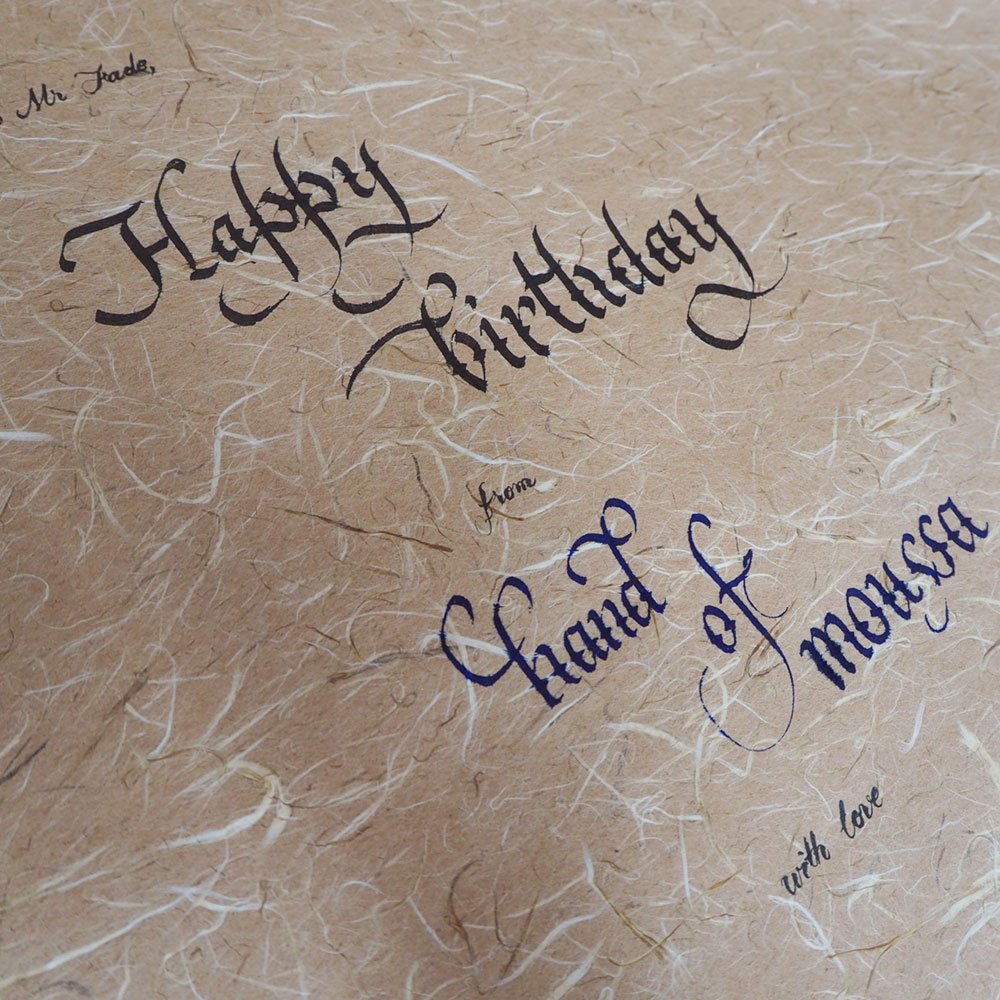 Mr Fade,
Happy
birthday
from
hand of moussa
with love